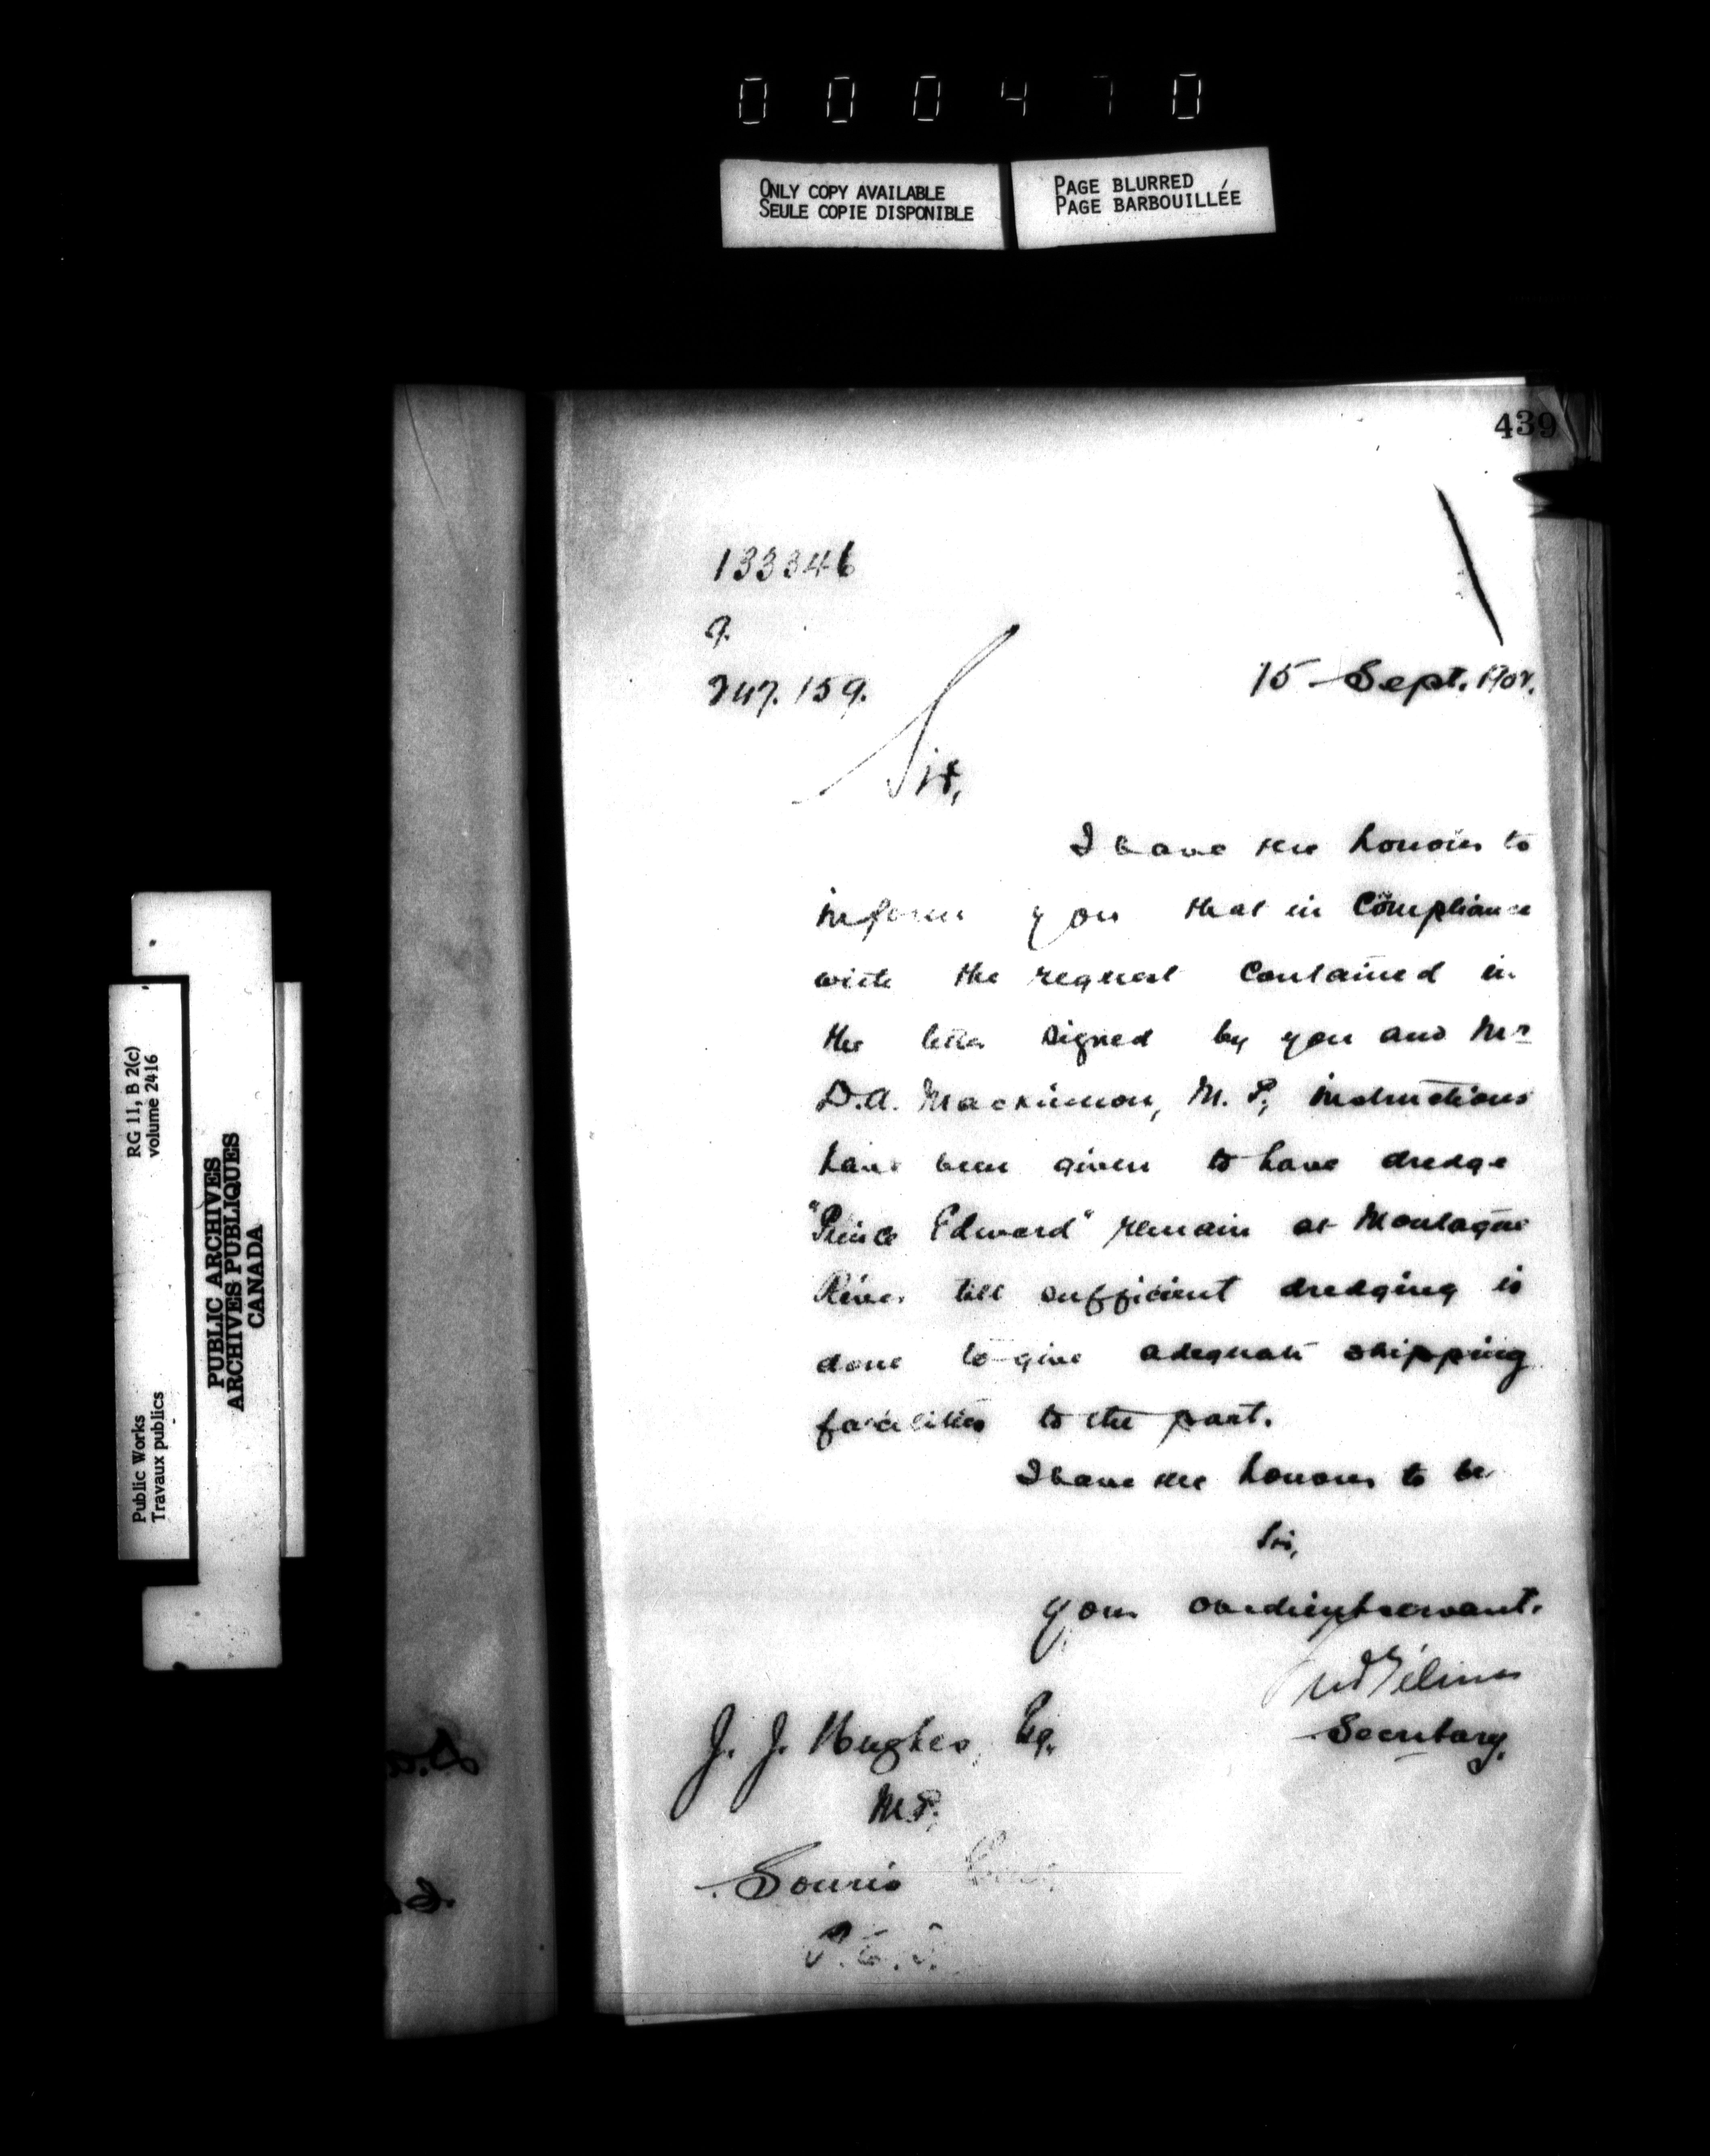 000470
ONLY COPY AVAILABLE
SEULE COPIE DISPONIBLE
PAGE BLURRED
PAGE BARBOUILLÉE
439
133346
9.
247.159.
15 Sept. 1902.
Sir,
I have the honour to
inform you that in compliance
with the request contained in
the letter signed by you and Mr
D.A. Mackinnon, M.P., instructions
have been given to have dredge
"Prince Edward" remain at Montague
River till sufficient dredging is
done to give adequate shipping
facilities to the port.
I have the honour to be
Sir,
Your obedient servant.
Fred Gélinas
Secretary.
J. J. Hughes, Esq.
M.P.,
Souris
P.E.I.
RG 11, B 2(c)
volume 2416
Public Works
Travaux publics
PUBLIC ARCHIVES
ARCHIVES PUBLIQUES
CANADA